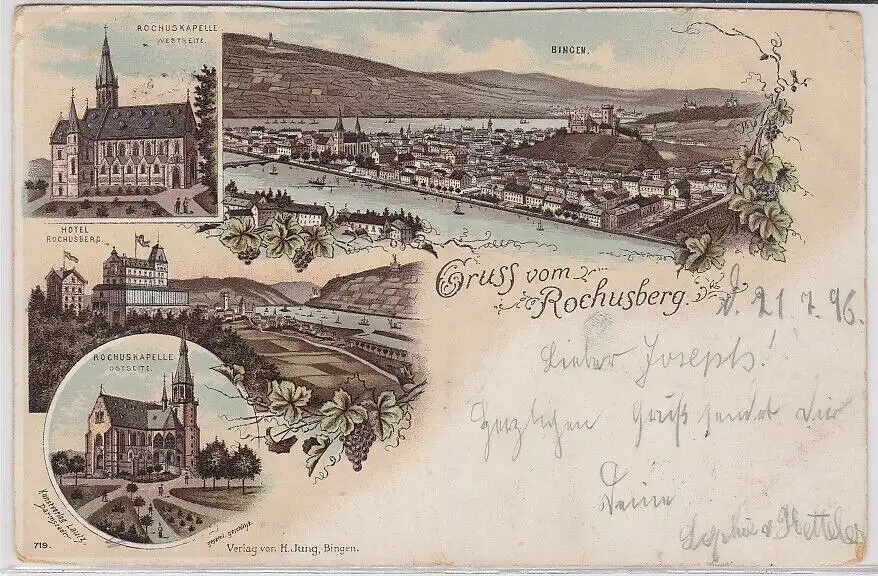 ROCHUSKAPELLE
WESTSEITE.
BINGEN.
HOTEL
ROCHUSBERG.
Gruss vom
Rochusberg.
d. 21.7.96.
Lieber Joseph!
Herzlichen Gruß sendet Dir
Deine
Sophie v Ketteler
ROCHUSKAPELLE
OSTSEITE.
Kunstverlag Lautz,
Darmstadt.
gesetzl. geschützt.
719.
Verlag von H. Jung, Bingen.